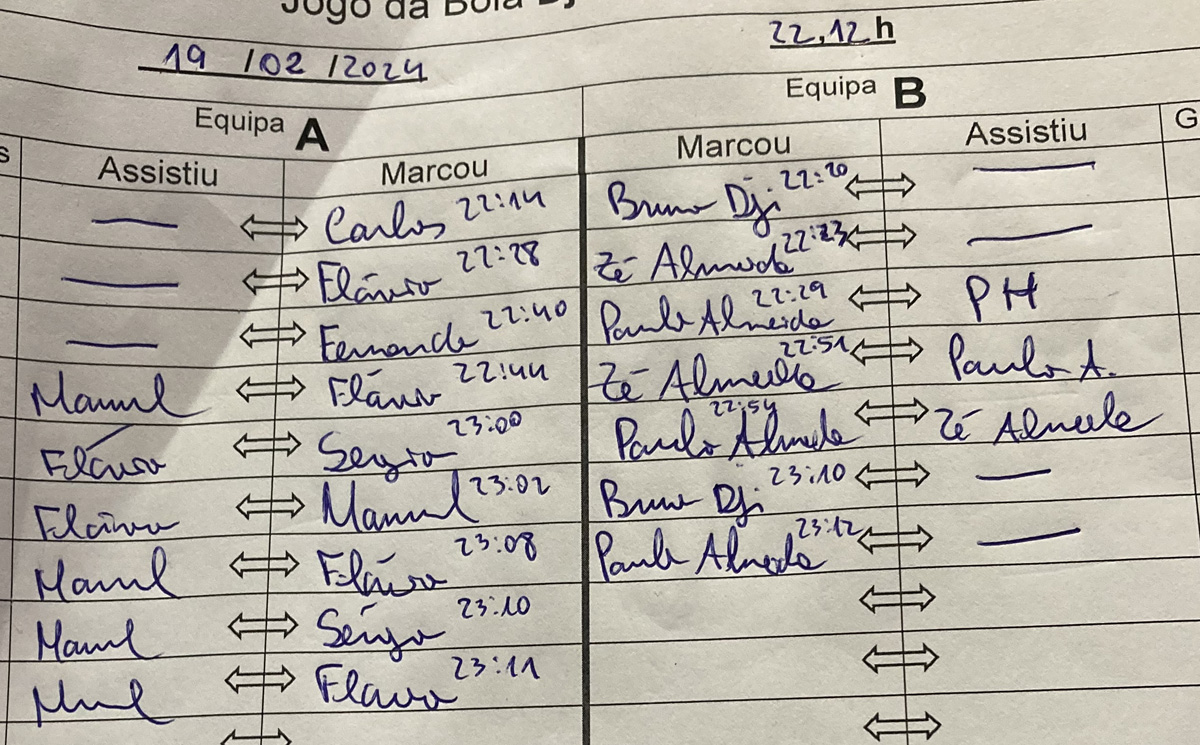 Jogo da Bola Dj
19 / 02 / 2024 22,12 h
Equipa A Equipa B
s Assistiu Marcou Marcou Assistiu G
— Carlos 22:14 Bruno Dji 22:20 —
— Flávio 22:28 Zé Almeida 22:23 —
— Fernando 22:40 Paulo Almeida 22:29 PH
Manuel Flávio 22:44 Zé Almeida 22:51 Paulo A.
Flávio Sergio 23:00 Paulo Almeida 22:54 Zé Almeida
Flávio Manuel 23:02 Bruno Dji 23:10 —
Manuel Flávio 23:08 Paulo Almeida 23:12 —
Manuel Sérgio 23:10
Manuel Flavio 23:11